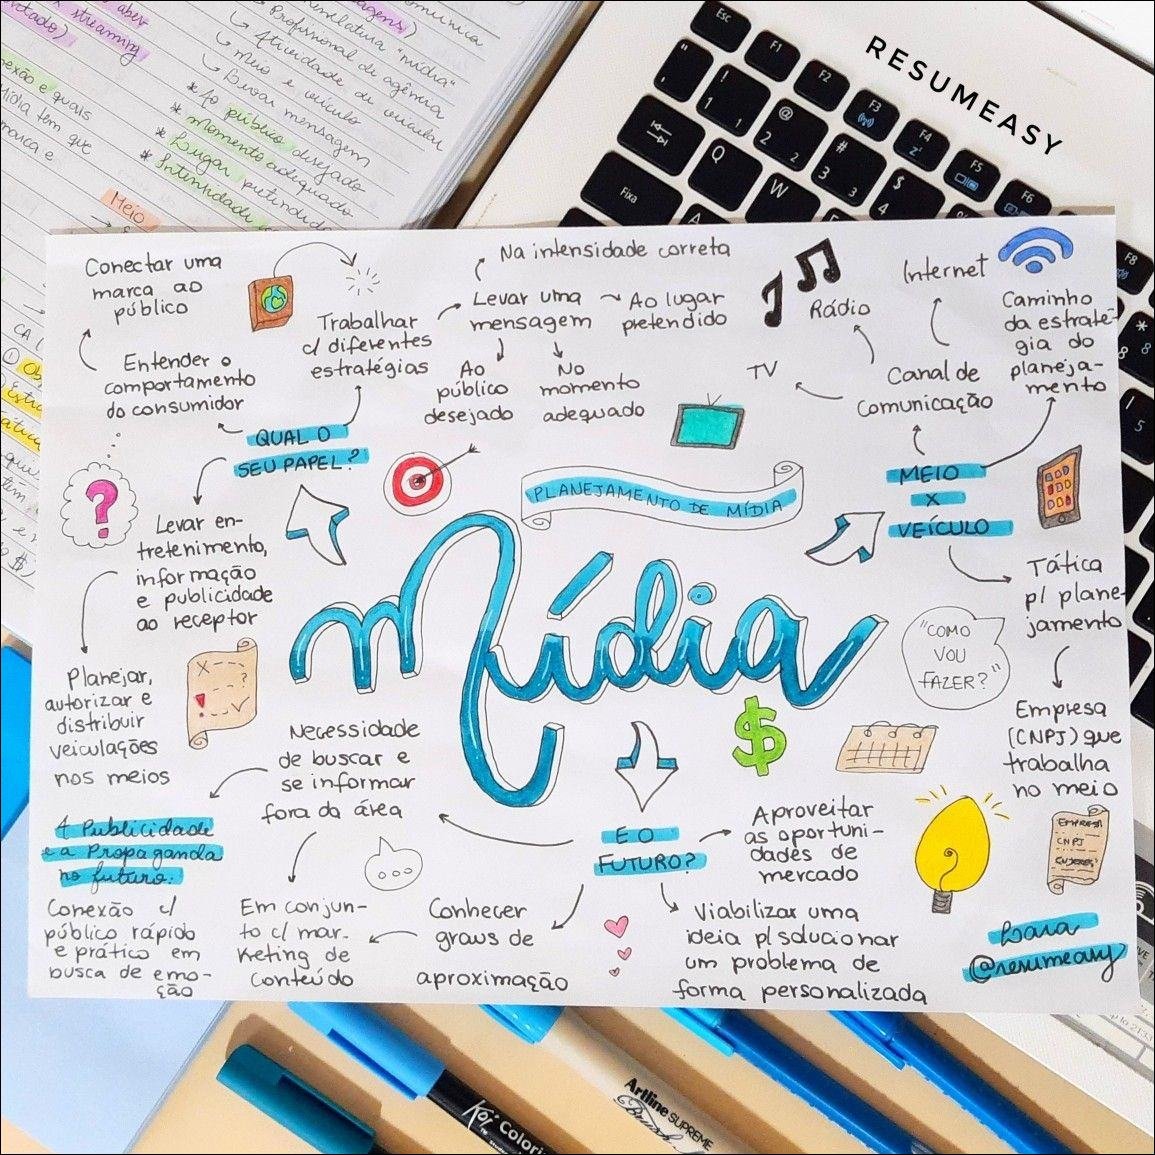 RESUMEASY
x streaming
nomenclatura "mídia"
Profissional de agência
Atividade de veicular
meio e veículo
Buscar mensagem
* Ao público desejado
* momento adequado
* Lugar pretendido
* Intensidade
Meio
Esc
F1
F2
F3
F4
F5
F6
F8
Q
W
Fixa
Conectar uma
marca ao
público
Entender o
comportamento
do consumidor
Trabalhar
c/ diferentes
estratégias
QUAL O
SEU PAPEL?
Levar en-
tretenimento,
informação
e publicidade
ao receptor
Planejar,
autorizar e
distribuir
veiculações
nos meios
Na intensidade correta
Levar uma
mensagem
Ao lugar
pretendido
Ao
público
desejado
No
momento
adequado
PLANEJAMENTO DE MÍDIA
mídia
Internet
Rádio
TV
Canal de
Comunicação
Caminho
da estraté-
gia do
planeja-
mento
MEIO
X
VEÍCULO
Tática
p/ plane-
jamento
"COMO
VOU
FAZER?"
Empresa
(CNPJ) que
trabalha
no meio
EMPRESA
CNPJ
Necessidade
de buscar e
se informar
fora da área
A Publicidade
e a Propaganda
no futuro:
Conexão c/
público rápido
e prático em
busca de emo-
ção
Em conjun-
to c/ mar-
keting de
conteúdo
Conhecer
graus de
aproximação
E O
FUTURO?
Aproveitar
as oportuni-
dades de
mercado
Viabilizar uma
ideia p/ solucionar
um problema de
forma personalizada
Lara
@resumeasy
Koi
Artline SUPREME
Brush